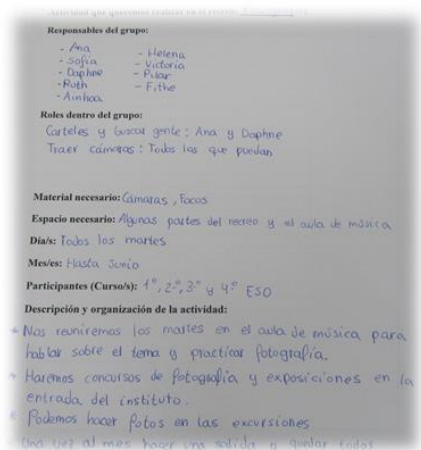 Actividad que queremos realizar en el recreo:
Responsables del grupo:
- Ana
- Sofía
- Daphne
- Ruth
- Ainhoa
- Helena
- Victoria
- Pilar
- Fithe
Roles dentro del grupo:
Carteles y buscar gente: Ana y Daphne
Traer cámaras: Todos los que puedan
Material necesario: Cámaras, Focos
Espacio necesario: Algunas partes del recreo y el aula de música
Día/s: Todos los martes
Mes/es: Hasta Junio
Participantes (Curso/s): 1º, 2º, 3º y 4º ESO
Descripción y organización de la actividad:
* Nos reuniremos los martes en el aula de música para
hablar sobre el tema y practicar fotografía.
* Haremos concursos de fotografía y exposiciones en la
entrada del instituto.
* Podemos hacer fotos en las excursiones
Una vez al mes hacer una salida o quedar todos